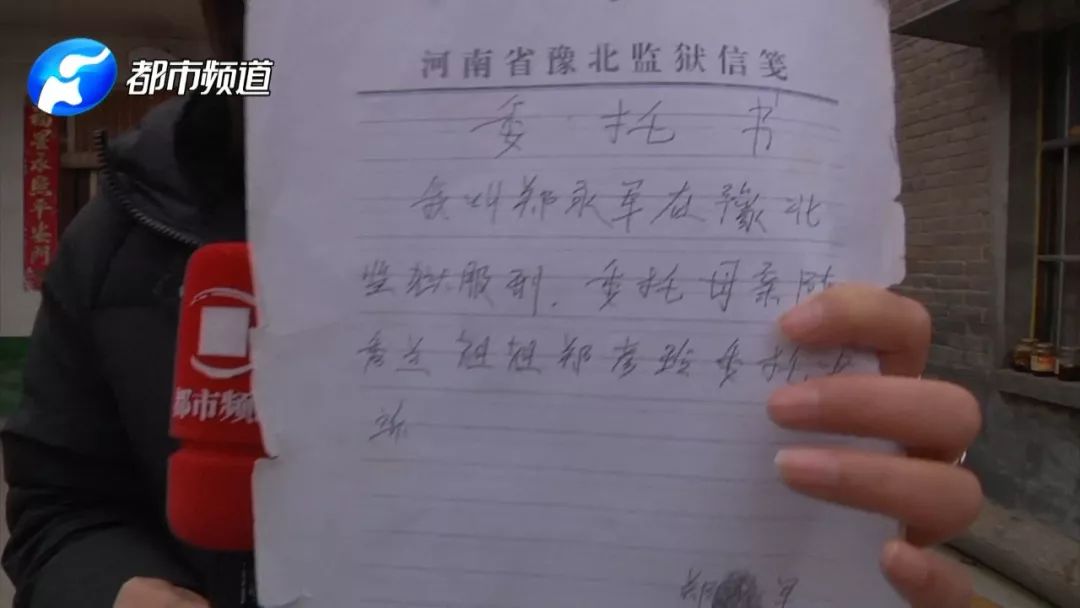 都市频道
河南省豫北监狱信笺
委托书
郑永军在豫北
监狱服刑.委托母亲陈
秀兰姐姐郑彦玲委托
郑 军
都市频
永平安门